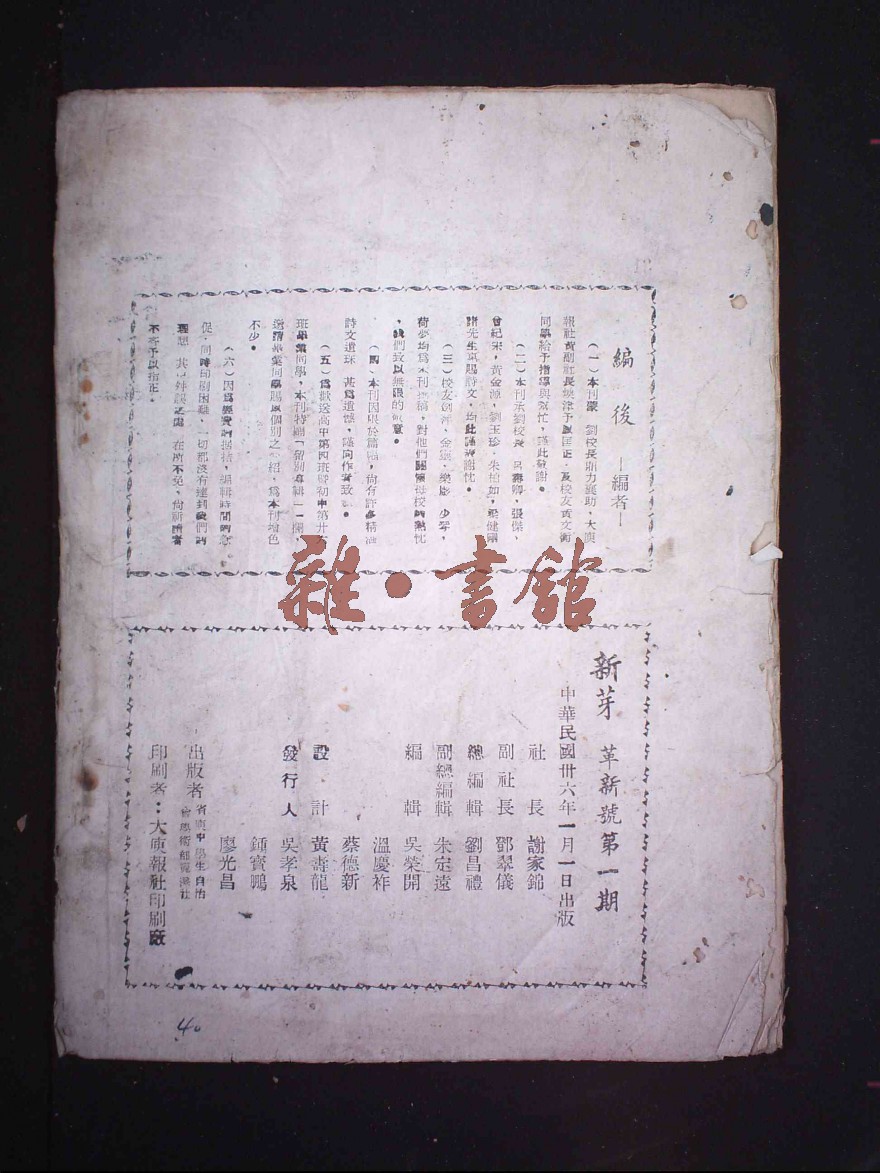 編後 —編者—
(一)本刊蒙 劉校長鼎力襄助,大庾
報社黃副社長 予以匡正,及校友黃文衡
同學給予指導與幫忙,謹此致謝。
(二)本刊承劉校長,呂 卿,張傑,
曾紀 ,黃金源,劉玉珍,朱柏如, 健
諸先生惠賜詩文,均此謹表謝忱。
(三)校友劍 ,金 ,樂 ,少 ,
荷 均為本刊 稿,對他們關懷母校的熱忱
,我們致以無限的敬意。
(四)本刊因限於篇幅,尚有許多精
詩文遺珠,甚為遺憾,謹向作者致 。
(五)為歡送高中第四班暨初中第廿
班畢業同學,本刊特 「留別專輯」一欄,
邀請畢業同學賜以個別之介紹,為本刊增色
不少。
(六)因為經費的拮据,編輯時間的急
促,同時印刷困難,一切都沒有達到我們的
理想,其 錯誤之處,在所不免,尚祈讀者
不吝予以指正。
雜·書館
新芽 革新號第一期
中華民國卅六年一月一日出版
社長 謝家錦
副社長 鄧翠儀
總編輯 劉昌禮
副總編輯 朱定遠
編輯 吳榮開
溫慶祚
蔡德新
設計 黃壽龍
發行人 吳孝泉
鍾寶鵬
廖光昌
出版者 省 中學生自治
會學術 社
印刷者:大庾報社印刷廠
40